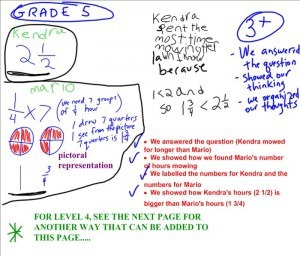 GRADE 5
Kendra
2 1/2
mario
1/4 x 7
(we need 7 groups
of 1/4 hour)
I drew 7 quarters
I see from the picture
7 quarters is 1 3/4
pictoral
representation
1 3/4
Kendra
spent the
most time
mowing the
lawn I know
because
1<2 and
so 1 3/4 < 2 1/2
3+
- We answered
the question
- showed our
thinking
- we organized
our thoughts
• We answered the question (Kendra mowed
for longer than Mario)
• We showed how we found Mario's number
of hours mowing
• We labelled the numbers for Kendra and the
numbers for Mario
• We showed how Kendra's hours (2 1/2) is
bigger than Mario's hours (1 3/4)
* FOR LEVEL 4, SEE THE NEXT PAGE FOR
ANOTHER WAY THAT CAN BE ADDED TO
THIS PAGE.....